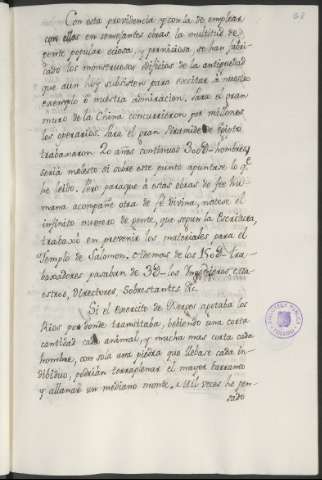 Con esta providencia y con la de emplear
con ellas en semejantes obras la multitud de
gente popular ociosa, y perniciosa se han fabri-
cado los monstruosos edificios de la antiguedad
que aun hoy subsisten para excitar á nuestro
exemplo ó nuestra admiracion. Para el gran
muro de la China concurrieron por millones
los operarios. Para el gran Piramide de Egipto
trabaxaron 20 años continuos 360D hombres
seria molesto si sobre este punto apuntase lo qe.
he leido. Pero para que á estas obras de fee hu-
mana acompañe otra de fé divina, notese el
infinito numero de gente, que segun la Escritura,
trabaxó en prevenir los materiales para el
Templo de Salomon. Ademas de los 150D tra-
baxadores pasaban de 3D los Ingenieros, ma-
estros, Directores, Sobrestantes &c.
Si el exercito de Xerxes agotaba los
Rios por donde transitaba, bebiendo una corta
cantidad cada animal, y mucha mas corta cada
hombre, con sola una piedra que llebase cada in-
dibiduo, podrian terraplenar el mayor barranco
y allanar un mediano monte. Mil veces he pen-
sado